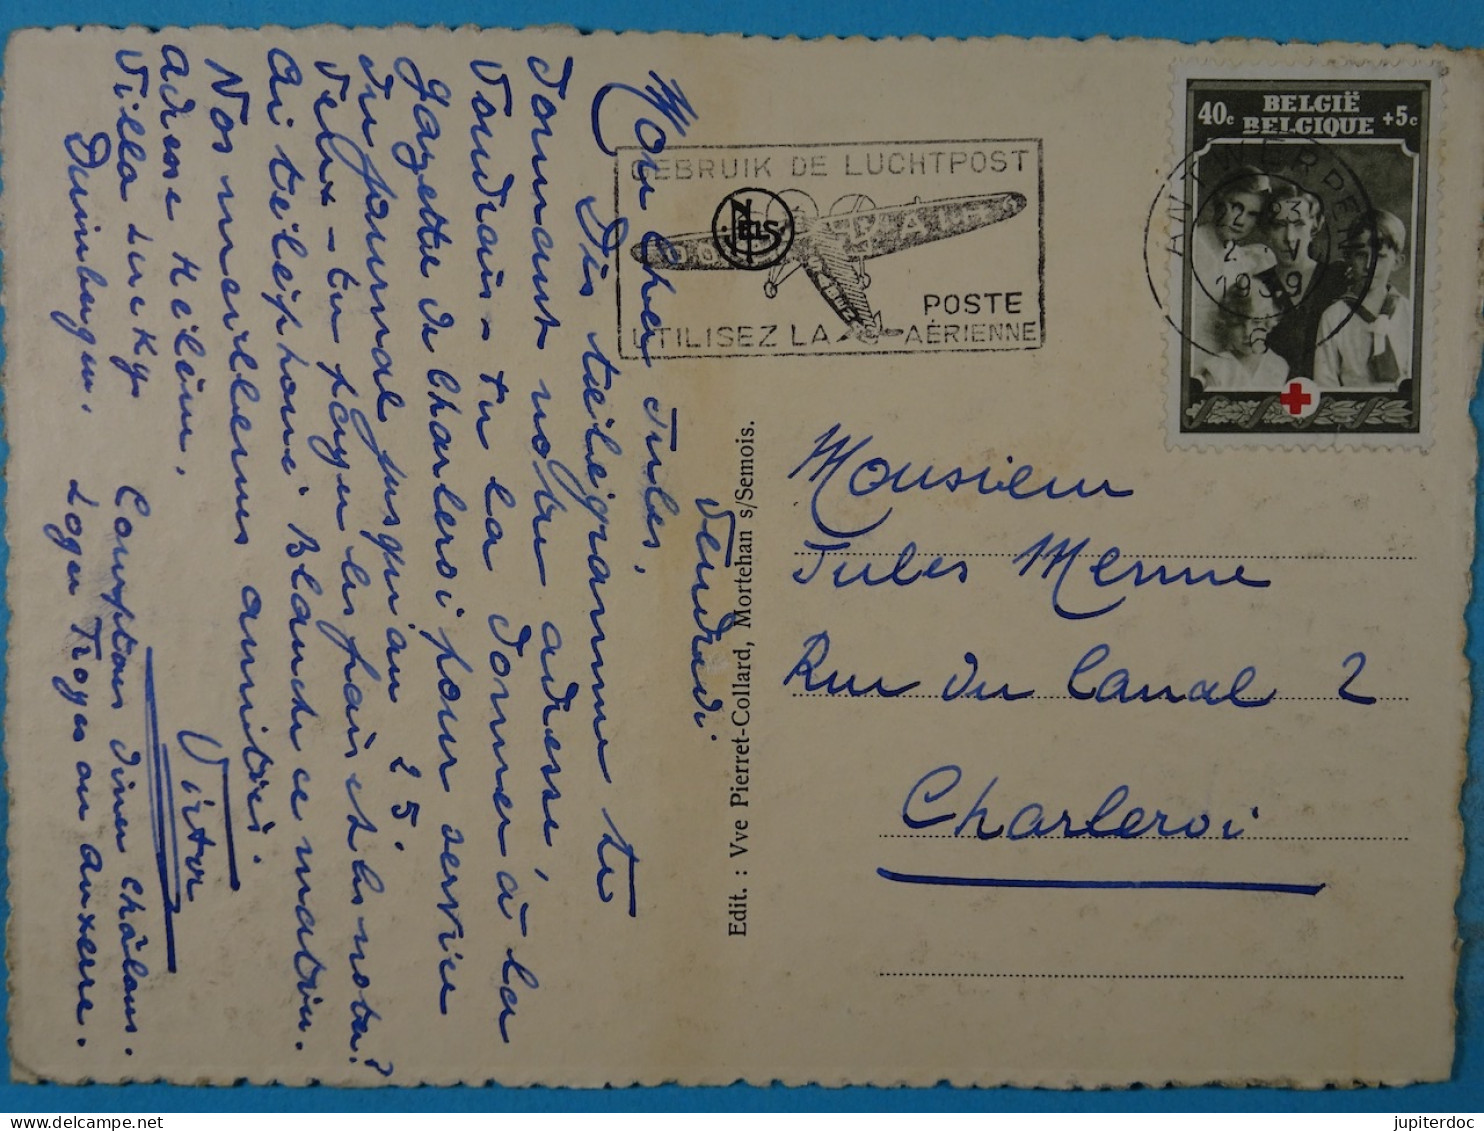 Vendredi
Mon cher Jules,
Dès télégramme te
donnant notre adresse,
Voudrais-tu la donner à la
gazette de Charleroi pour service
du journal jusqu'au 25.
Veux-tu payer les frais et les noter?
Ai téléphoné Blanche ce matin.
Nos meilleures amitiés.
Victor
adresse Hélène,
Villa Lucky
Duinbergen.
Comptons diner châlons.
Loger Troyes ou auxerre.
Edit. : Vve Pierret-Collard, Mortehan s/Semois.
GEBRUIK DE LUCHTPOST
NELS
POSTE
UTILISEZ LA AÉRIENNE
BELGIË
40c BELGIQUE +5c
ANTWERPEN
22-23
2 - V
1939
Monsieur
Jules Menne
Rue du Canal 2
Charleroi
jupiterdoc